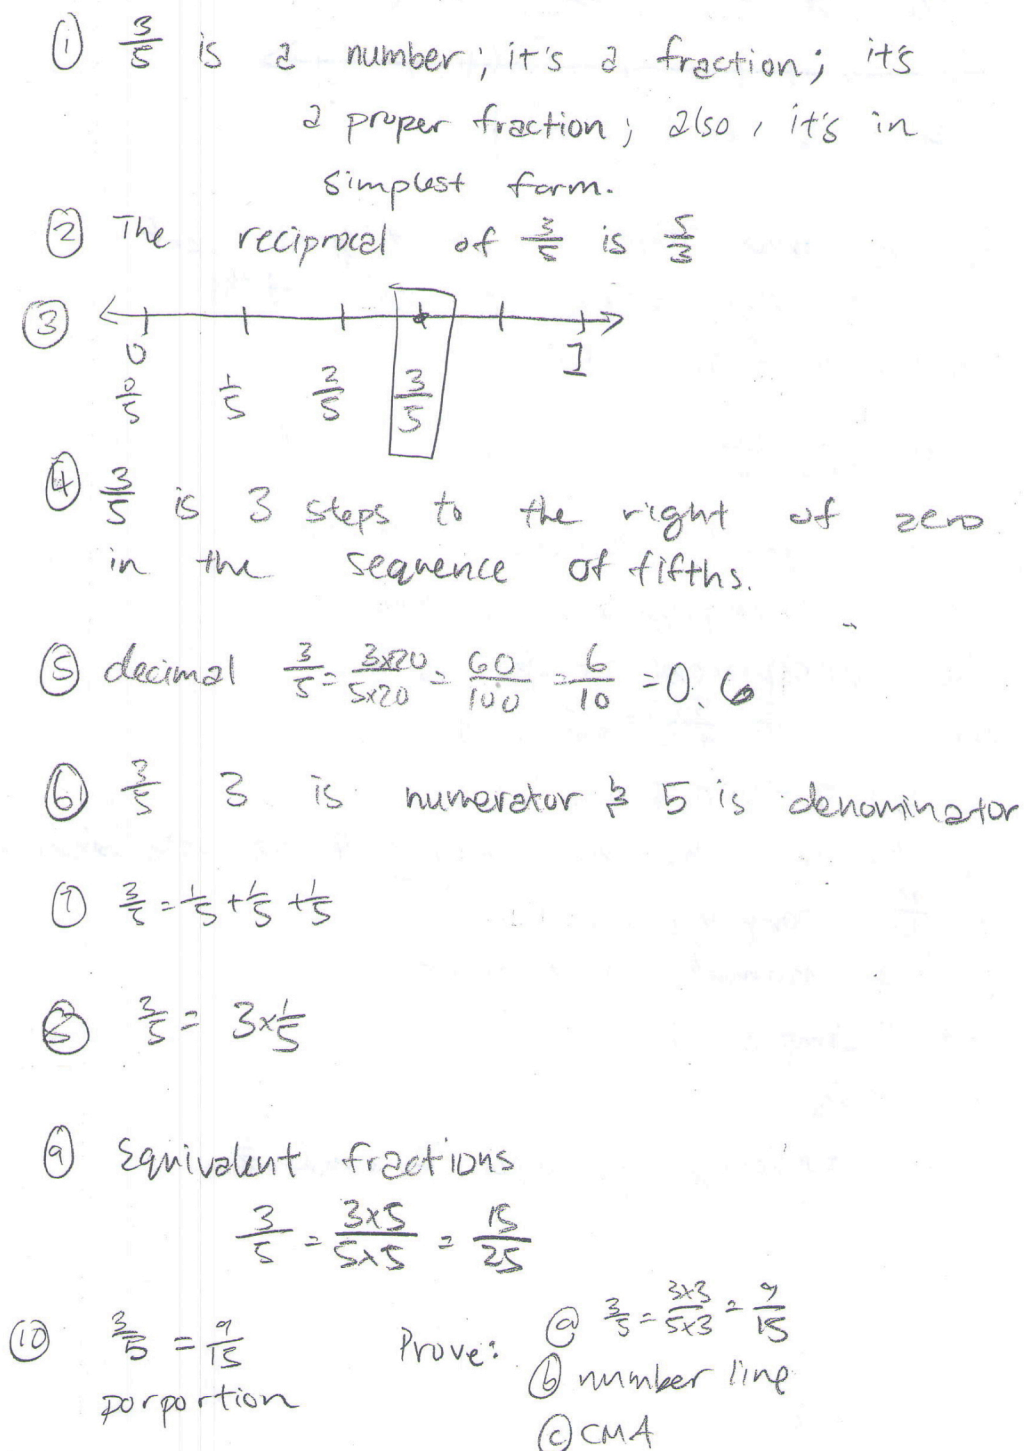 ① 3/5 is a number; it's a fraction; it's
a proper fraction; also, it's in
simplest form.
② The reciprocal of 3/5 is 5/3
③
0 1
0/5 1/5 2/5 3/5
④ 3/5 is 3 steps to the right of zero
in the sequence of fifths.
⑤ decimal 3/5 = 3x20/5x20 = 60/100 = 6/10 = 0.6
⑥ 3/5 3 is numerator & 5 is denominator
⑦ 3/5 = 1/5 + 1/5 + 1/5
⑧ 3/5 = 3 x 1/5
⑨ Equivalent fractions
3/5 = 3x5/5x5 = 15/25
⑩ 3/5 = 9/15 Prove: ⓐ 3/5 = 3x3/5x3 = 9/15
porportion ⓑ number line
ⓒ CMA